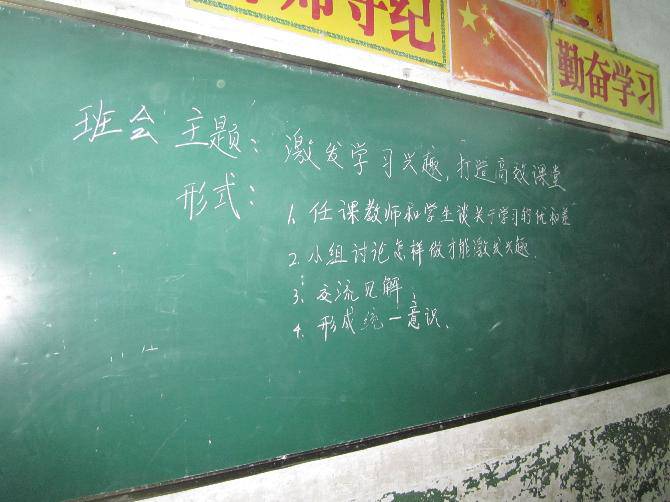 师守纪
勤奋学习
班会主题：激发学习兴趣，打造高效课堂
形式：
1、任课教师和学生谈关于学习的优和差
2、小组讨论怎样做才能激发兴趣.
3、交流见解
4、形成统一意识、